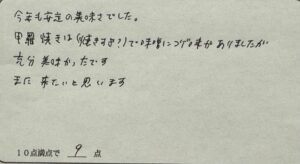 今年も安定の美味さでした。
甲羅焼きは(焼きすぎ?)で味噌にコゲ味がありましたが
充分美味かったです
また来たいと思います
10点満点で 9 点